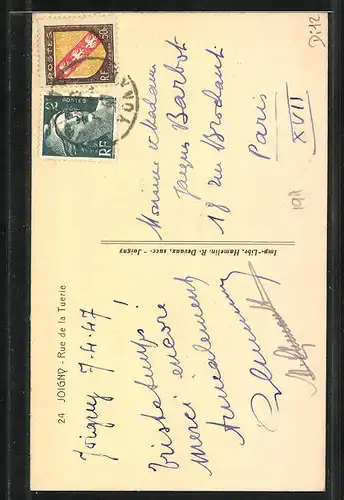 24 JOIGNY - Rue de la Tuerie
Joigny 7-4-47
Triste temps !
merci encore
Amicalement
Imp.-Libr. Hamelin, R. Devaux, succ. - Joigny
POSTES
50c
RF
POSTES
2F
RF
YONNE
Monsieur Madame
Jacques Barbot
18 rue Brodant
Paris
XVII
Di12